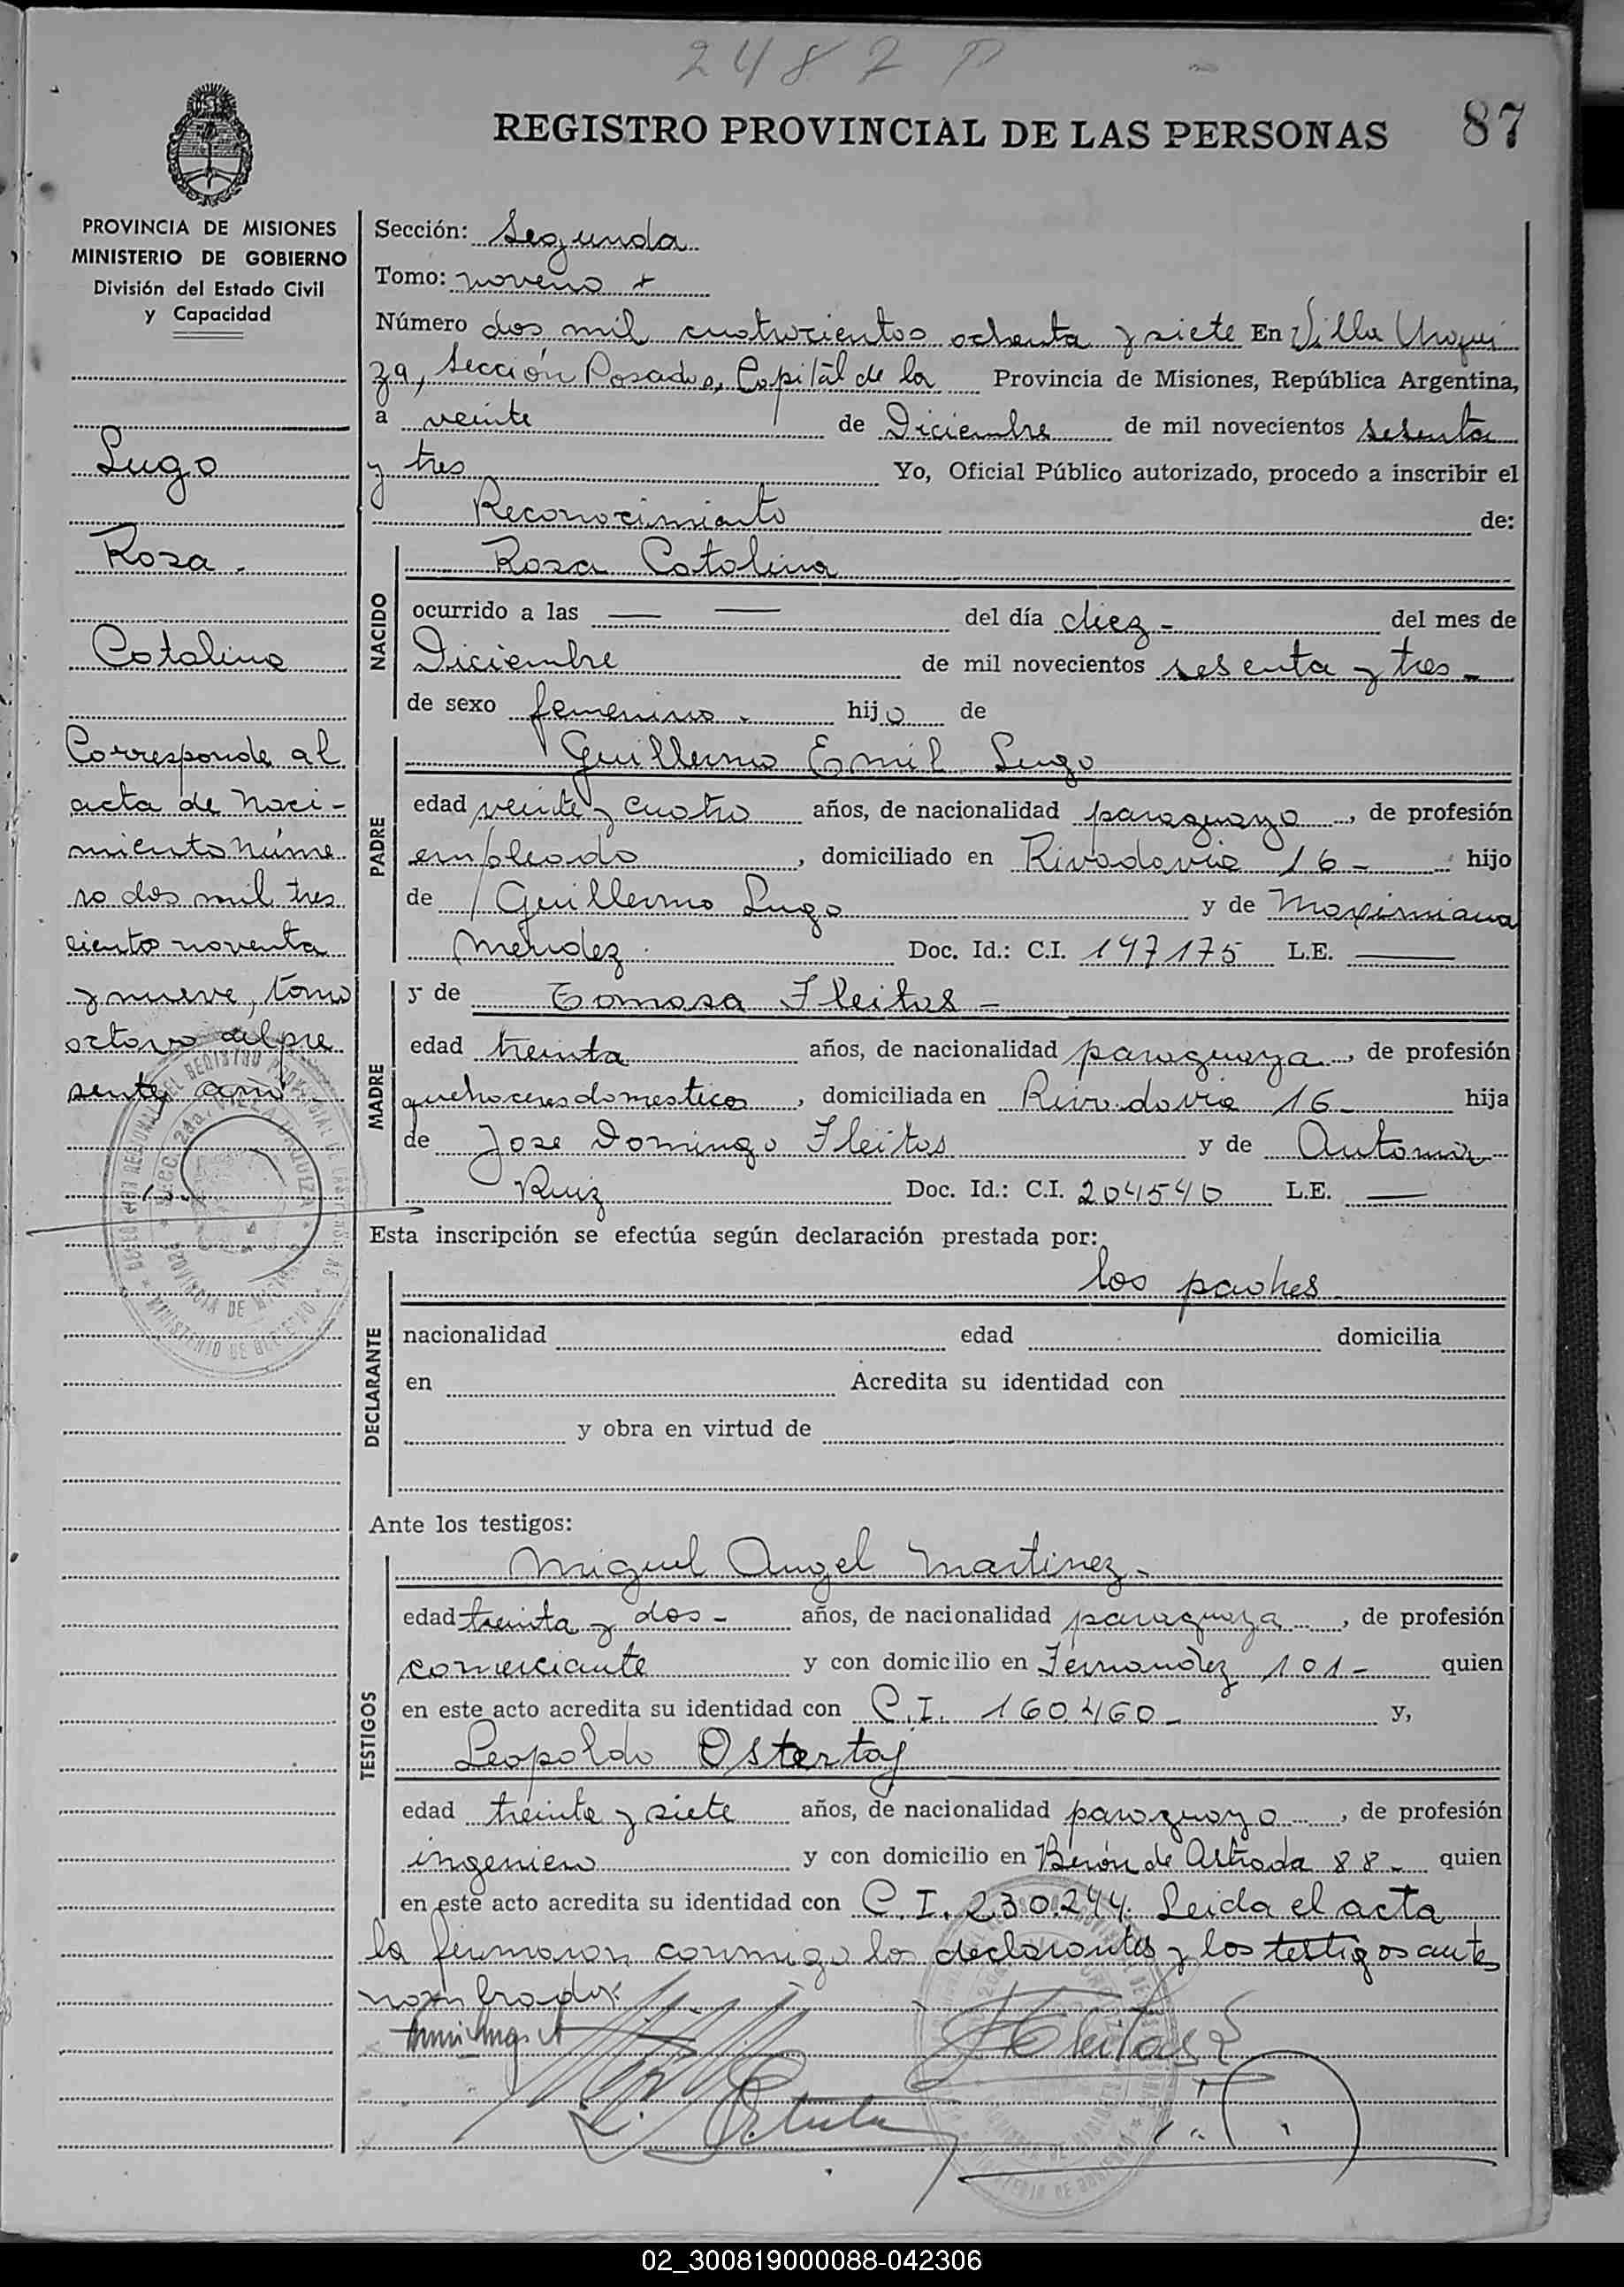 2487 P
REGISTRO PROVINCIAL DE LAS PERSONAS 87
PROVINCIA DE MISIONES
MINISTERIO DE GOBIERNO
División del Estado Civil
y Capacidad
Lugo
Rosa.
Catalina
Corresponde al
acta de Naci-
miento núme
ro dos mil tres
ciento noventa
y nueve, tomo
octavo del pre
sente año-
Sección: Segunda
Tomo: noveno
Número dos mil cuatrocientos ochenta y siete En Villa Urqui
za, Sección Posadas, Capital de la Provincia de Misiones, República Argentina,
a veinte de Diciembre de mil novecientos sesenta
y tres Yo, Oficial Público autorizado, procedo a inscribir el
Reconocimiento de:
NACIDO
Rosa Catalina
ocurrido a las — — del día diez - del mes de
Diciembre de mil novecientos sesenta y tres -
de sexo femenino. hijo de
PADRE
Guillermo Emil Lugo
edad veinte y cuatro años, de nacionalidad paraguayo, de profesión
empleado, domiciliado en Rivadavia 16 - hijo
de Guillermo Lugo y de Maximiana
Mendez. Doc. Id.: C.I. 197175 L.E. —
MADRE
y de Tomasa Fleitas -
edad treinta años, de nacionalidad paraguaya, de profesión
quehaceres domesticos, domiciliada en Rivadavia 16 - hija
de Jose Domingo Fleitas y de Antonia
Ruiz Doc. Id.: C.I. 204540 L.E. —
Esta inscripción se efectúa según declaración prestada por:
DECLARANTE
los padres
nacionalidad edad domicilia
en Acredita su identidad con
y obra en virtud de
Ante los testigos:
TESTIGOS
Miguel Angel Martinez -
edad treinta y dos - años, de nacionalidad paraguaya, de profesión
comerciante y con domicilio en Fernandez 101 - quien
en este acto acredita su identidad con C.I. 160460 - y,
Leopoldo Ostertag
edad treinta y siete años, de nacionalidad paraguayo, de profesión
ingeniero y con domicilio en Berón de Astrada 88 - quien
en este acto acredita su identidad con C.I. 230.294. Leida el acta
la firmaron conmigo los declarantes y los testigos ante
nombrados
TFleitas
02_300819000088-042306